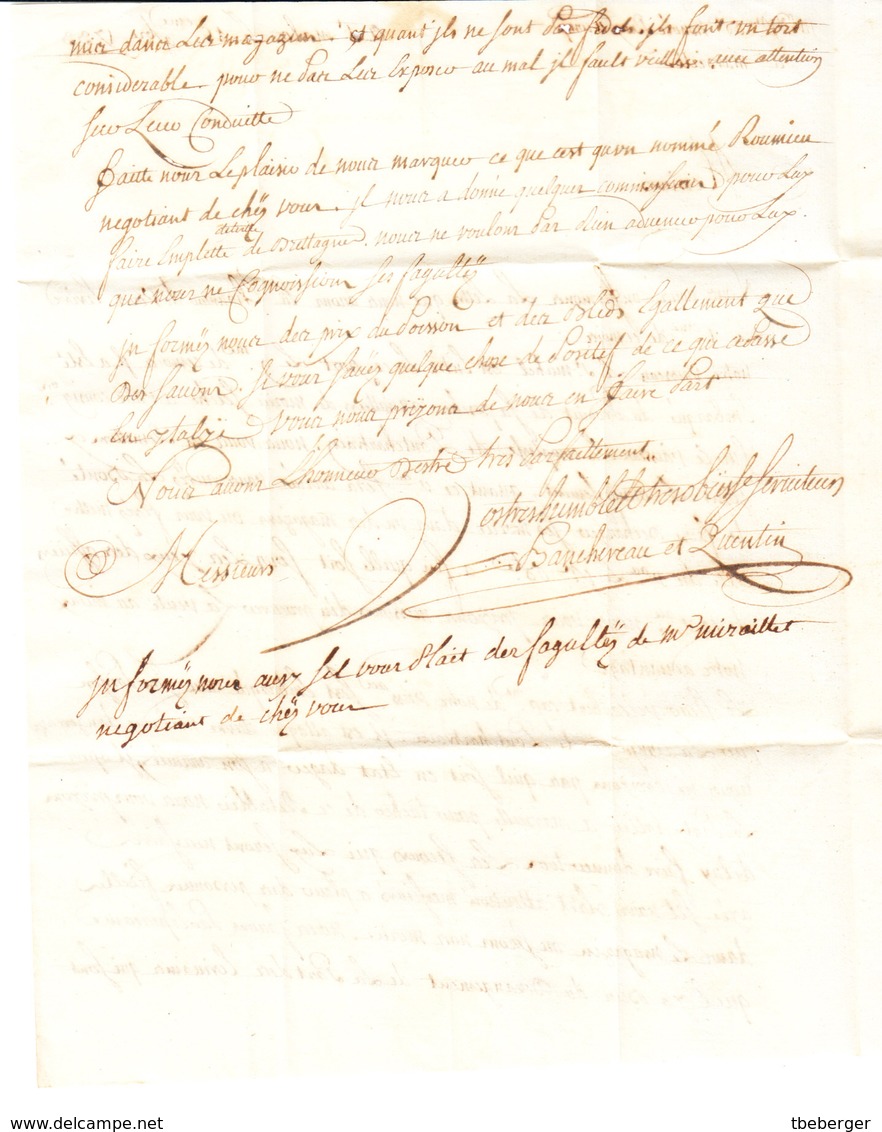 mis dans Les magazin. et quant jls ne sont pas fidel. jls font un tort
considerable pour ne pas Les Exposer au mal jl fault veiller avec attention
sur Leur Conduitte
faitte nous Le plaisir de nous marquer ce que cest quvn nommé Roumieu
negotiant de chëz vous. jl nous a donné quelques commissions pour Luy
faire Emplette de Brettagne. nous ne voulons pas Rien advencer pour Luy.
que nous ne Cognoissions ses facultëz
jn formëz nous des prix du poisson et des Blëds Egallement que
des savons. si vous savëz quelque chose de positif de ce qui ce passe
En jtalye vous nous prions de nous en faire part
Nous avons L'honneur Destre tres parfaittement
Messieurs
Vos tres humble et tres obëiss. serviteurs
Banchereau et Quentin
jn formëz nous aussy sil vous plait des facultëz de mr. miraillet
negotiant de chëz vous
www.delcampe.net
tbeberger